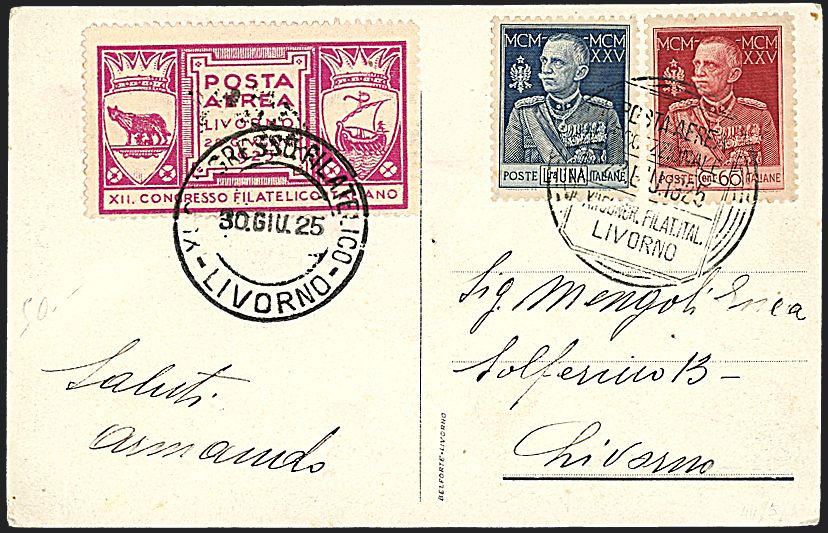 POSTA
AEREA
LIVORNO
XII. CONGRESSO FILATELICO ITALIANO
XII CONGRESSO FILATELICO
30.GIU.25
-LIVORNO-
MCM MCM
XXV
POSTE Lire UNA ITALIANE
MCM MCM
XXV
POSTE Cent 60 ITALIANE
POSTA AEREA
1925
XII CONGR. FILAT. ITAL.
LIVORNO
50.-
Saluti
Armando
Sig. Mengoli
Solferino 13 -
Livorno
BELFORTE-LIVORNO